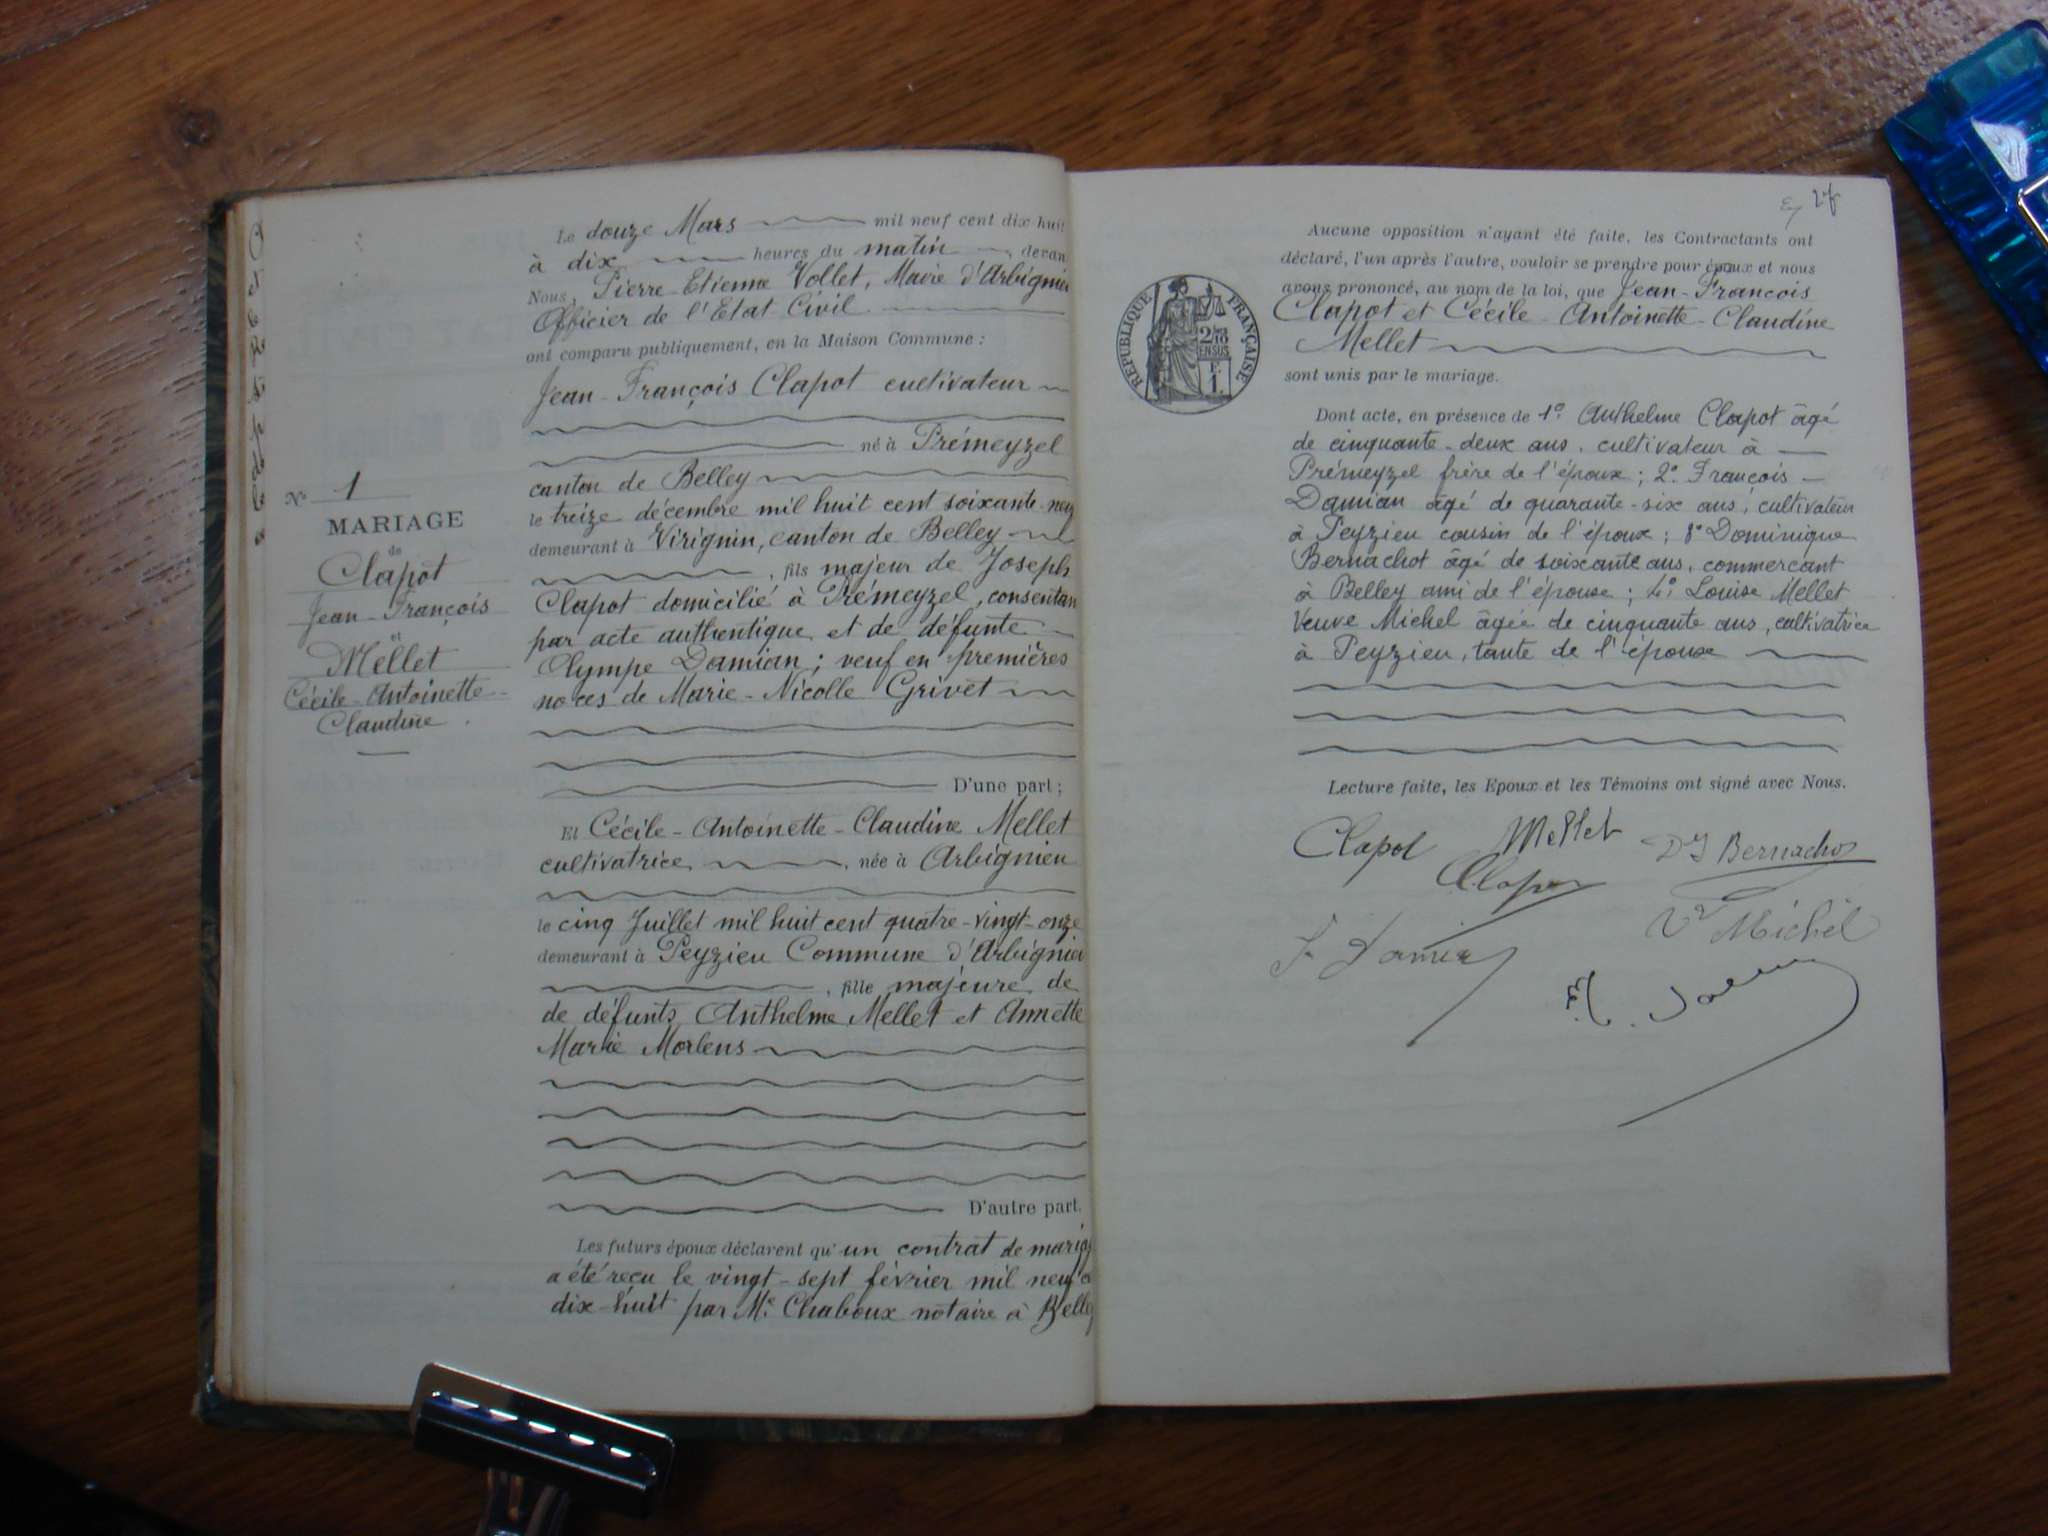 N° 1
MARIAGE
de
Clapot
Jean-François
et
Mellet
Cécile-Antoinette-
Claudine
Le douze Mars mil neuf cent dix huit
à dix heures du matin, devan
Nous, Pierre Etienne Vollet, Maire d'Arbignieu
Officier de l'Etat Civil
ont comparu publiquement, en la Maison Commune :
Jean-François Clapot cultivateur
né à Prémeyzel
canton de Belley
le treize décembre mil huit cent soixante-neuf
demeurant à Virignin, canton de Belley
, fils majeur de Joseph
Clapot domicilié à Prémeyzel, consentan
par acte authentique et de défunte
Olympe Damian ; veuf en premières
noces de Marie-Nicolle Grivet
D'une part ;
Et Cécile-Antoinette-Claudine Mellet
cultivatrice, née à Arbignieu
le cinq Juillet mil huit cent quatre-vingt-onze
demeurant à Peyzieu Commune d'Arbignieu
, fille majeure de
de défunts Anthelme Mellet et Annette
Marie Morlens
D'autre part.
Les futurs époux déclarent qu'un contrat de mariag
a été reçu le vingt-sept février mil neuf c
dix-huit par Me Chaboux notaire à Belley
27
Aucune opposition n'ayant été faite, les Contractants ont
déclaré, l'un après l'autre, vouloir se prendre pour époux et nous
avons prononcé, au nom de la loi, que Jean-François
Clapot et Cécile-Antoinette-Claudine
Mellet
sont unis par le mariage.
RÉPUBLIQUE FRANÇAISE
2/10
EN SUS
F.
1.
Dont acte, en présence de 1° Anthelme Clapot âgé
de cinquante-deux ans, cultivateur à
Prémeyzel frère de l'époux ; 2° François
Damian âgé de quarante-six ans, cultivateur
à Peyzieu cousin de l'époux ; 3° Dominique
Bernachot âgé de soixante ans, commerçant
à Belley ami de l'épouse ; 4° Louise Mellet
Veuve Michel âgée de cinquante ans, cultivatrice
à Peyzieu, tante de l'épouse
Lecture faite, les Epoux et les Témoins ont signé avec Nous.
Clapot Mellet Bernachot
Clapot
Vve Michel
F. Damian